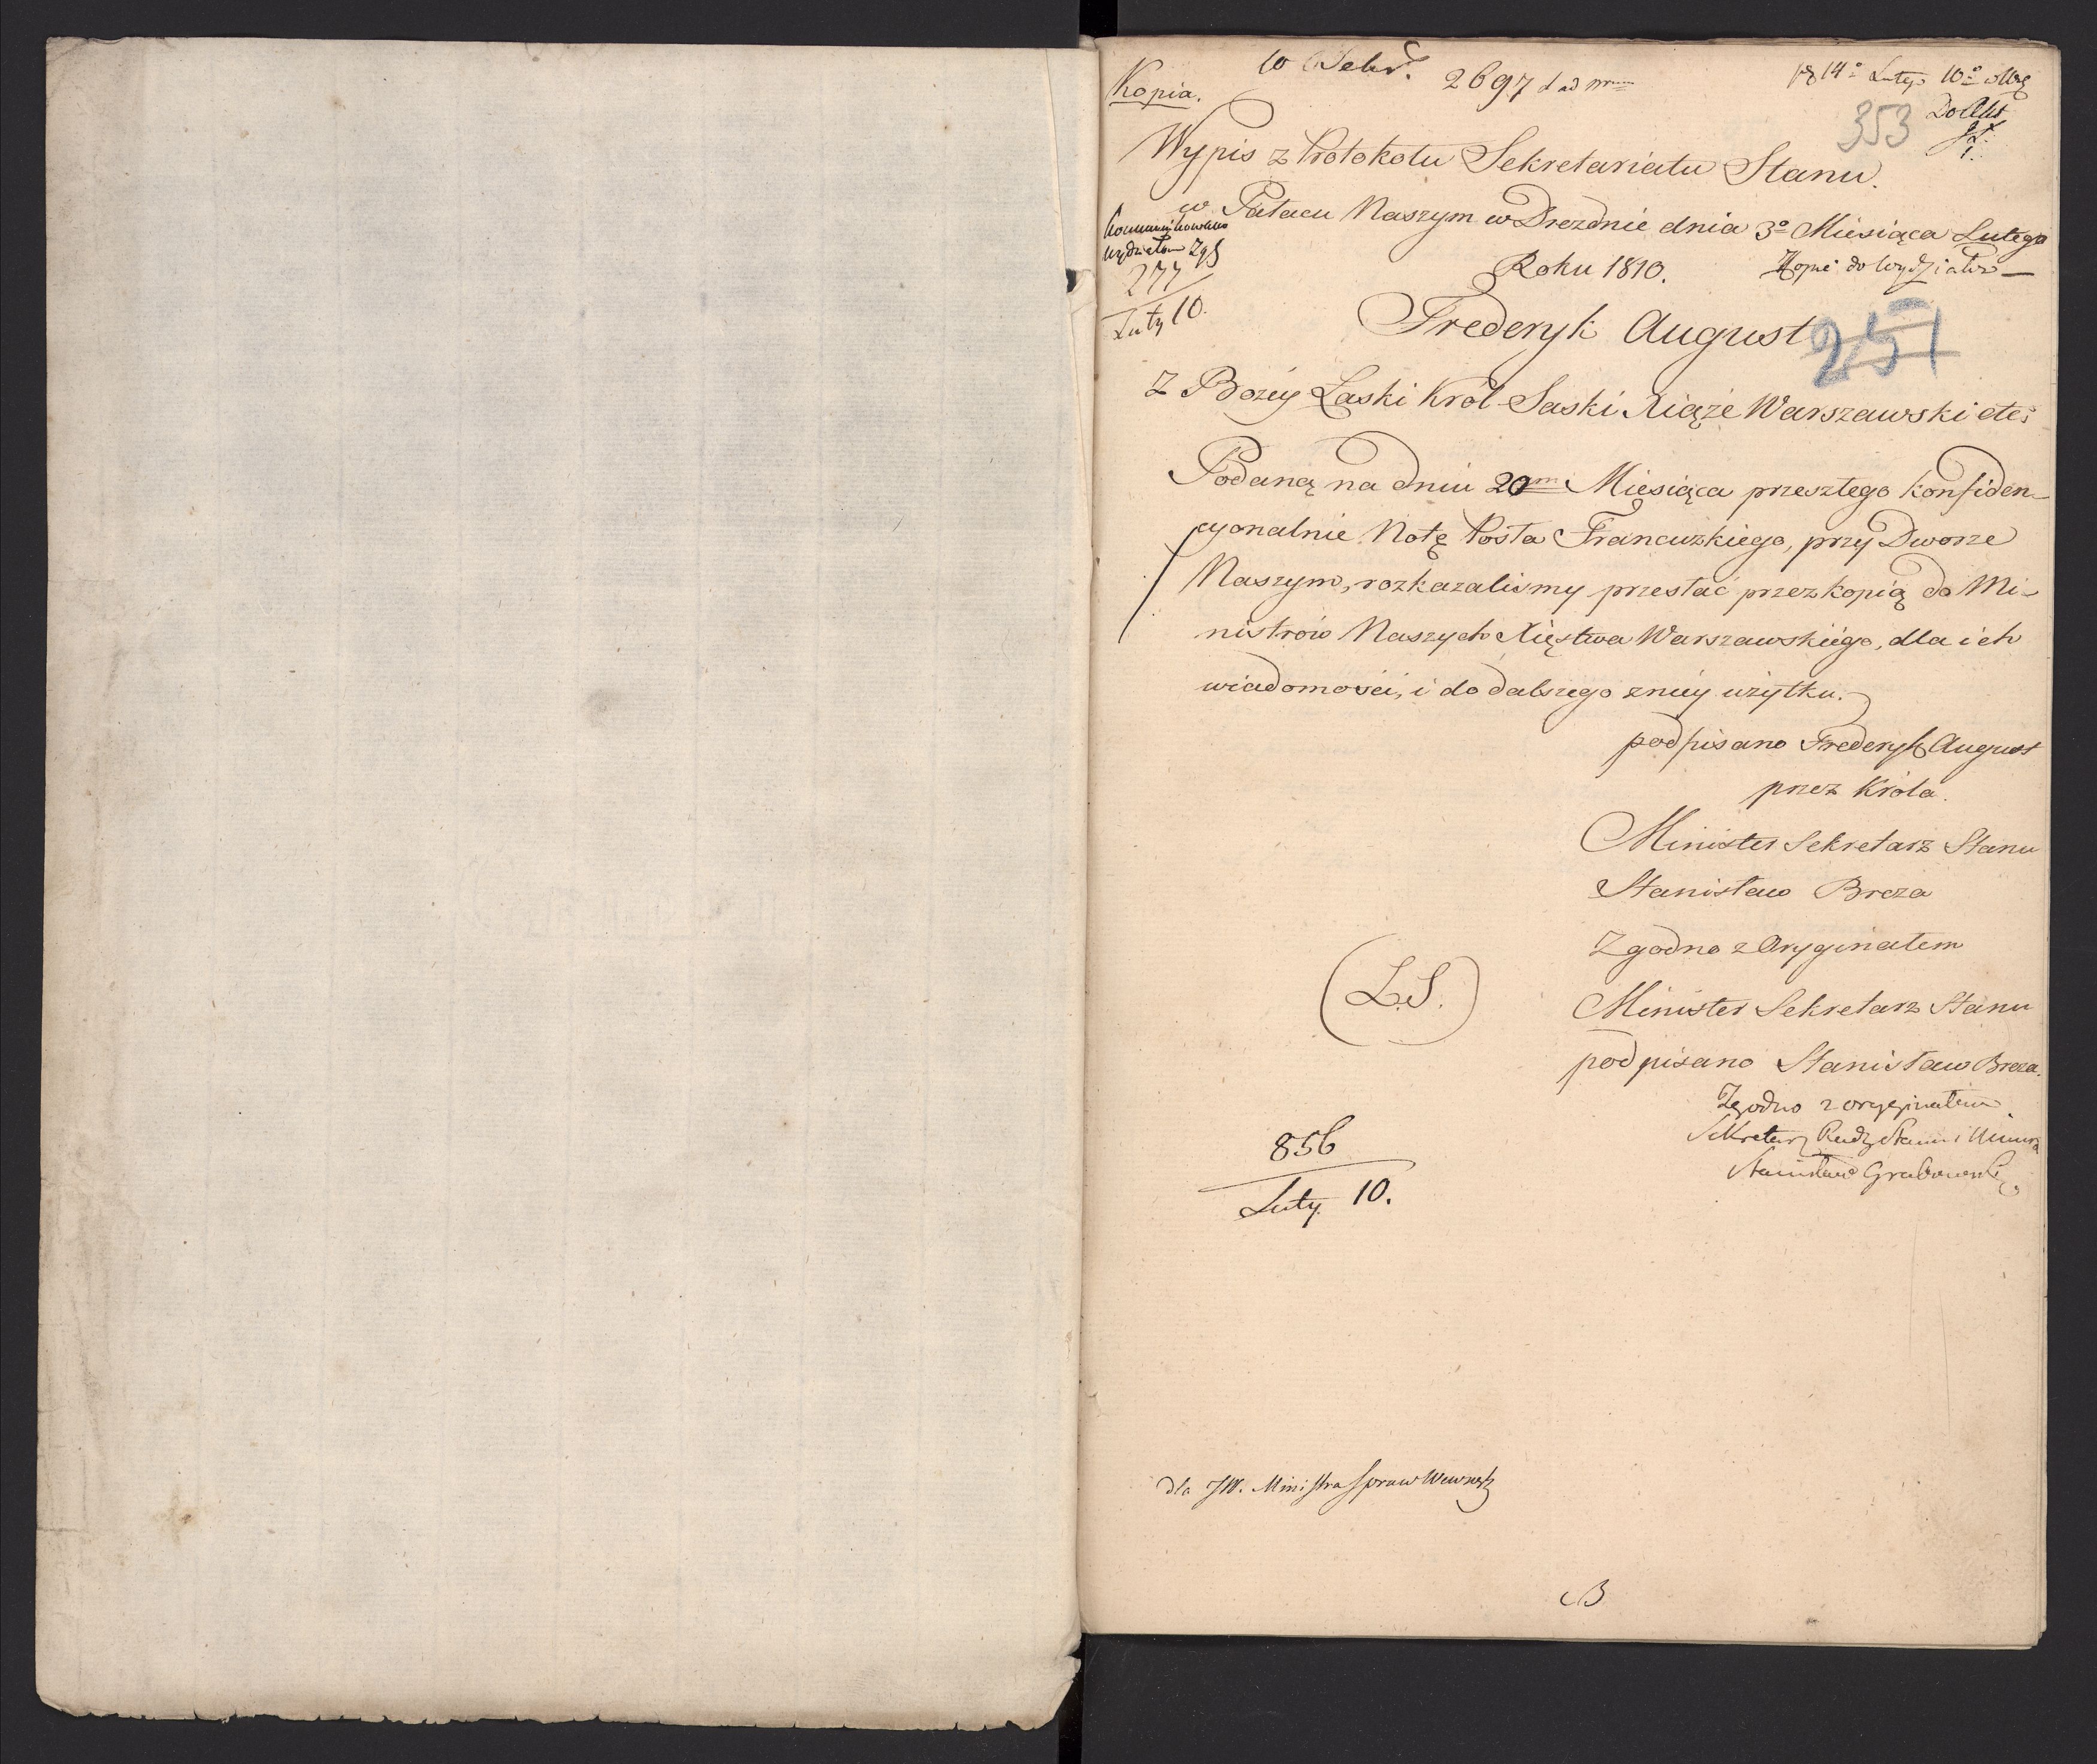 Kopia.
2697 d ad nrum
14° Lutego 10°
353
Do Akt
Wypis z Protokołu Sekretariatu Stanu.
w Pałacu Naszym w Dreznie dnia 3° Miesiąca Lutego
Roku 1810.
Kopie do Wydziałów
Kommunikowano
Wydziałom
277
Luty 10.
Frederyk August
251
Z Bożey Łaski Król Saski Xiąże Warszawski etc:
Podaną na dniu 20m Miesiąca przeszłego konfiden-
cyonalnie Notę Posła Francuzkiego, przy Dworze
Naszym, rozkazaliśmy przesłać przez kopią do Mi-
nistrów Naszych Xięstwa Warszawskiégo, dla ich
wiadomości, i do dalszego zniéy użytku.
podpisano Frederyk August
przez Króla.
Minister Sekretarz Stanu
Stanisław Breza
Zgodno z Oryginałem
(L.S.)
Minister Sekretarz Stanu
podpisano Stanisław Breza.
Zgodno z oryginałem.
Sekretarz Rady Stanu i Ministrów
Stanisław Grabowski
856
Luty 10.
dla JW. Ministra Spraw Wewnętrz
B